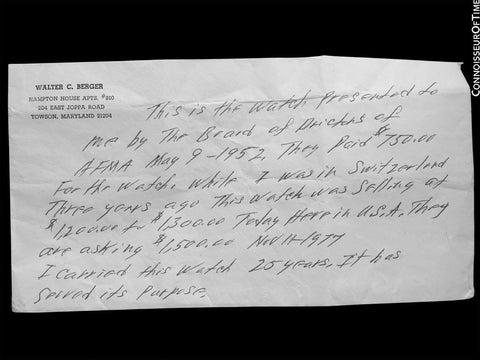 CONNOISSEUROFTIME
WALTER C. BERGER
HAMPTON HOUSE APTS. #910
204 EAST JOPPA ROAD
TOWSON, MARYLAND 21204
This is the watch Presented to
me by The Board of Drictors of
AFMA May 9-1952, They Paid $750.00
For the watch. While I was in Switzerland
Three years ago This watch was selling at
$1,200.00 to $1300.00 Today Here in U.S.A. They
are asking $1,500.00 Nov 11-1977
I carried this watch 25 years, It has
served its Purpose.